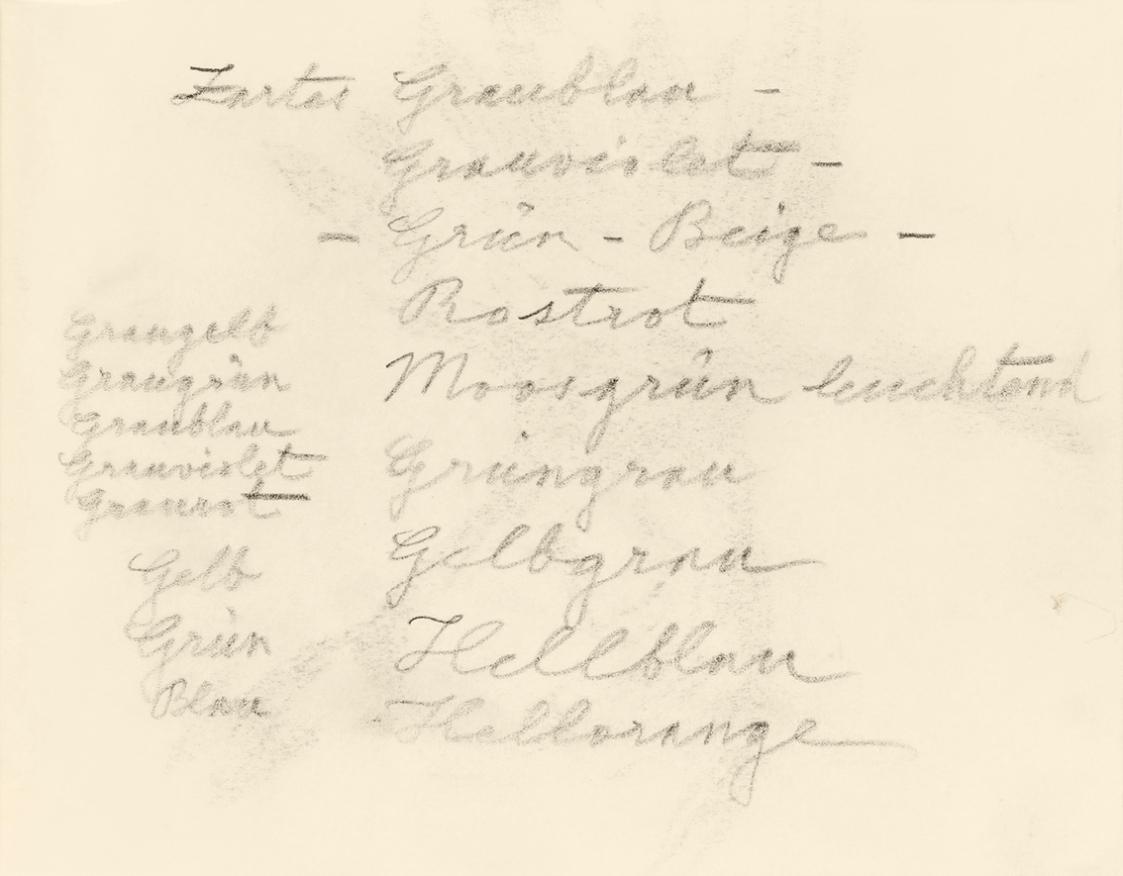 Zartes Graublau -
Grauviolet -
- Grün - Beige -
Rostrot
Moosgrün leuchtend
Grüngrau
Gelbgrau
Hellblau
Hellorange
Graugelb
Graugrün
Graublau
Grauviolet
Graurot
Gelb
Grün
Blau